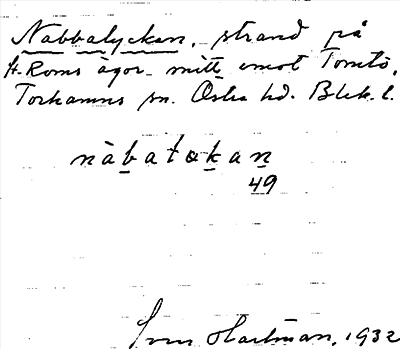 Nabbalyckan, strand på
H. Roms ägor mitt emot Tomtö,
Torhamns sn. Östra hd. Blek. l.
nàbatokan
49
Hartman, 1932